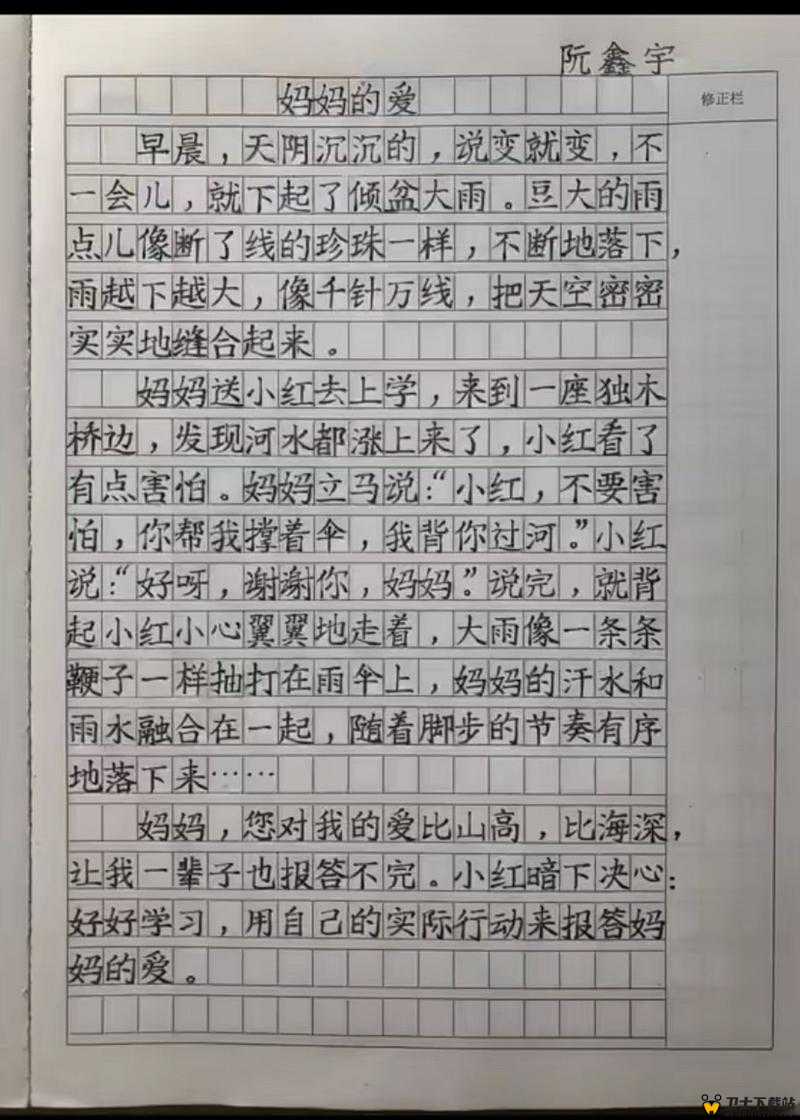 阮鑫宇
修正栏
妈妈的爱
早晨，天阴沉沉的，说变就变，不
一会儿，就下起了倾盆大雨。豆大的雨
点儿像断了线的珍珠一样，不断地落下，
雨越下越大，像千针万线，把天空密密
实实地缝合起来。
妈妈送小红去上学，来到一座独木
桥边，发现河水都涨上来了，小红看了
有点害怕。妈妈立马说：“小红，不要害
怕，你帮我撑着伞，我背你过河。”小红
说：“好呀，谢谢你，妈妈。”说完，就背
起小红小心翼翼地走着，大雨像一条条
鞭子一样抽打在雨伞上，妈妈的汗水和
雨水融合在一起，随着脚步的节奏有序
地落下来……
妈妈，您对我的爱比山高，比海深，
让我一辈子也报答不完。小红暗下决心：
好好学习，用自己的实际行动来报答妈
妈的爱。
卫士下载站